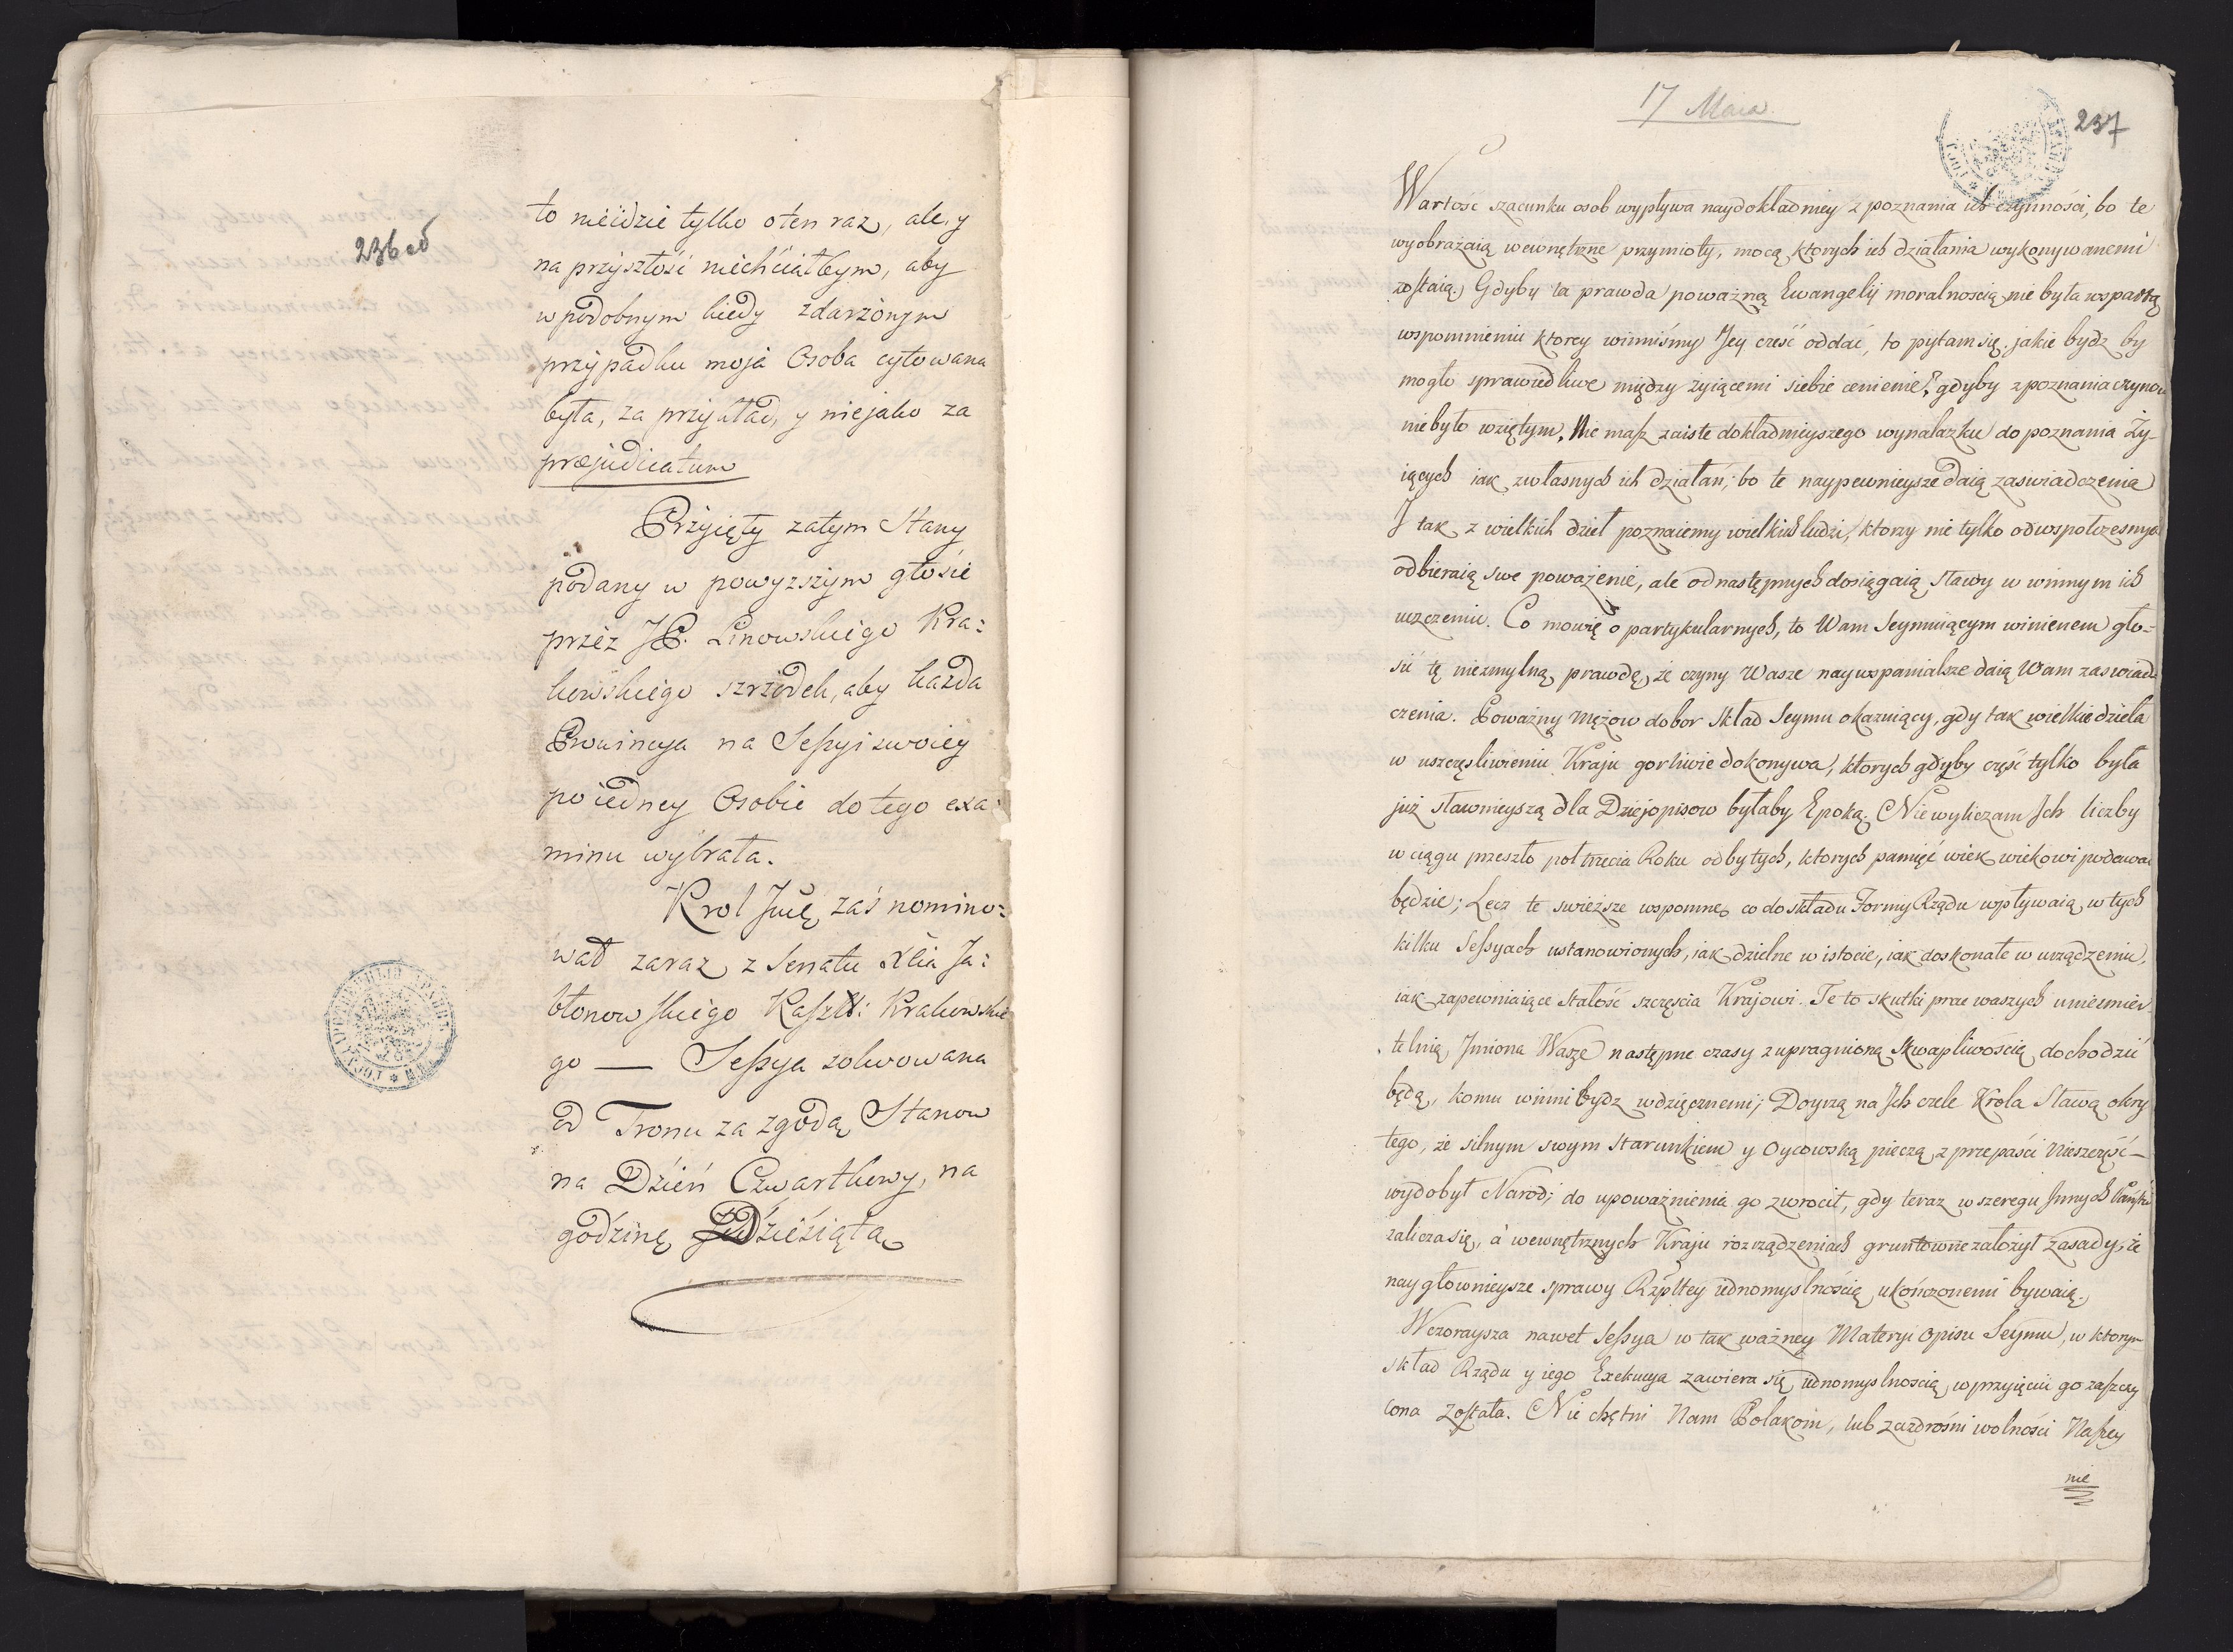 236 об
to nieidzie tylko o ten raz, ale y
na przyszłość niechciałbym, aby
w podobnym kiedy zdarzonym
przypadku moja Osoba cytowana
była, za przykład, y niejako za
præjudicatum
Przyięty zatym Stany
podany w powyzszym głosie
przez JP. Linowskiego Kra:
kowskiego szrzodek, aby każda
Prowincya na Seſsyi swoiey
po iedney Osobie do tego exa:
minu wybrała.
Krol Jmć zaś nomino:
wał zaraz z Senatu Xcia Ja:
błonowſkiego Kaſzt: Krakowskie
go — Seſsya solwowana
od Tronu za zgodą Stanow
na Dzień Czwartkowy, na
godzinę Dziesiątą
17 Maia
237
Wartość szacunku osob wypływa naydokładniey z poznania ich czynności, bo te
wyobrażaią wewnętrzne przymioty, mocą ktorych ich działania wykonywanemi
zoſtaią. Gdyby ta prawda poważną Ewangelij moralnością nie była wspartą
wspomnieniu ktorey winniśmy Jey cześć oddać, to pytam się. jakie bydz by
mogło sprawiedliwe między żyiącemi siebie cenienie? gdyby z poznania czynow
niebyło wziętym. Nie maſz zaiste dokładnieyszego wynalazku do poznania Ży-
iących iak zwłasnych ich działań; bo te naypewnieysze daią zaswiadczenia
J tak z wielkich dzieł poznaiemy wielkich ludzi, ktorzy nie tylko od wspołczesnych
odbieraią swe poważenie, ale od następnych dosięgaią sławy w winnym ich
uczczeniu. Co mowię o partykularnych, to Wam Seymuiącym winienem gło=
sić tę niezmylną prawdę, że czyny Wasze naywspanialsze daią Wam zaswiad
czenia. Poważny mężow dobor Skład Seymu okazuiący, gdy tak wielkie dzieła
w uszczęsliwieniu Kraju gorliwie dokonywa, ktorych gdyby część tylko była
już sławnieyszą dla Dziejopisow byłaby Epoką. Niewyliczam Jch liczby
w ciągu przeszło poł trzecia Roku odbytych, ktorych pamięć wiek wiekowi podawać
będzie; Lecz te swieższe wspomnę co do składu Formy Rządu wpływaią, w tych
kilku Seſsyach ustanowionych, iak dzielne w istocie, iak doskonałe w urządzeniu,
iak zapewniaiące Stałość szczęscia Krajowi. Te to skutki prac waszych unieśmier
telnią Jmiona Wasze następne czasy z upragnioną Skwapliwością dochodzić
będą, komu winni bydz wdzięcznemi; Doyrzą na Jch czele Krola Sławą okry
tego, że silnym swym Starunkiem y Oycowską pieczą z przepaści nieszczęść—
wydobył Narod; do upoważnienia go zwrocił, gdy teraz w szeregu Jnnych Państw
zalicza się, à wewnętrznych Kraju rozrządzeniach gruntowne założył zasady, że
nay głownieysze sprawy Rzpltey iednomyslnością ukończonemi bywaią.
Wczoraysza nawet Seſsya w tak ważney Materyi opisu Seymu, w ktorym
skład Rządu y iego Exekucya zawiera się iednomyslnością w przyięciu go zaſzczy
cona zoſtała. Nie chętni Nam Polakom, lub zazdrośni wolności Naſzey
nie